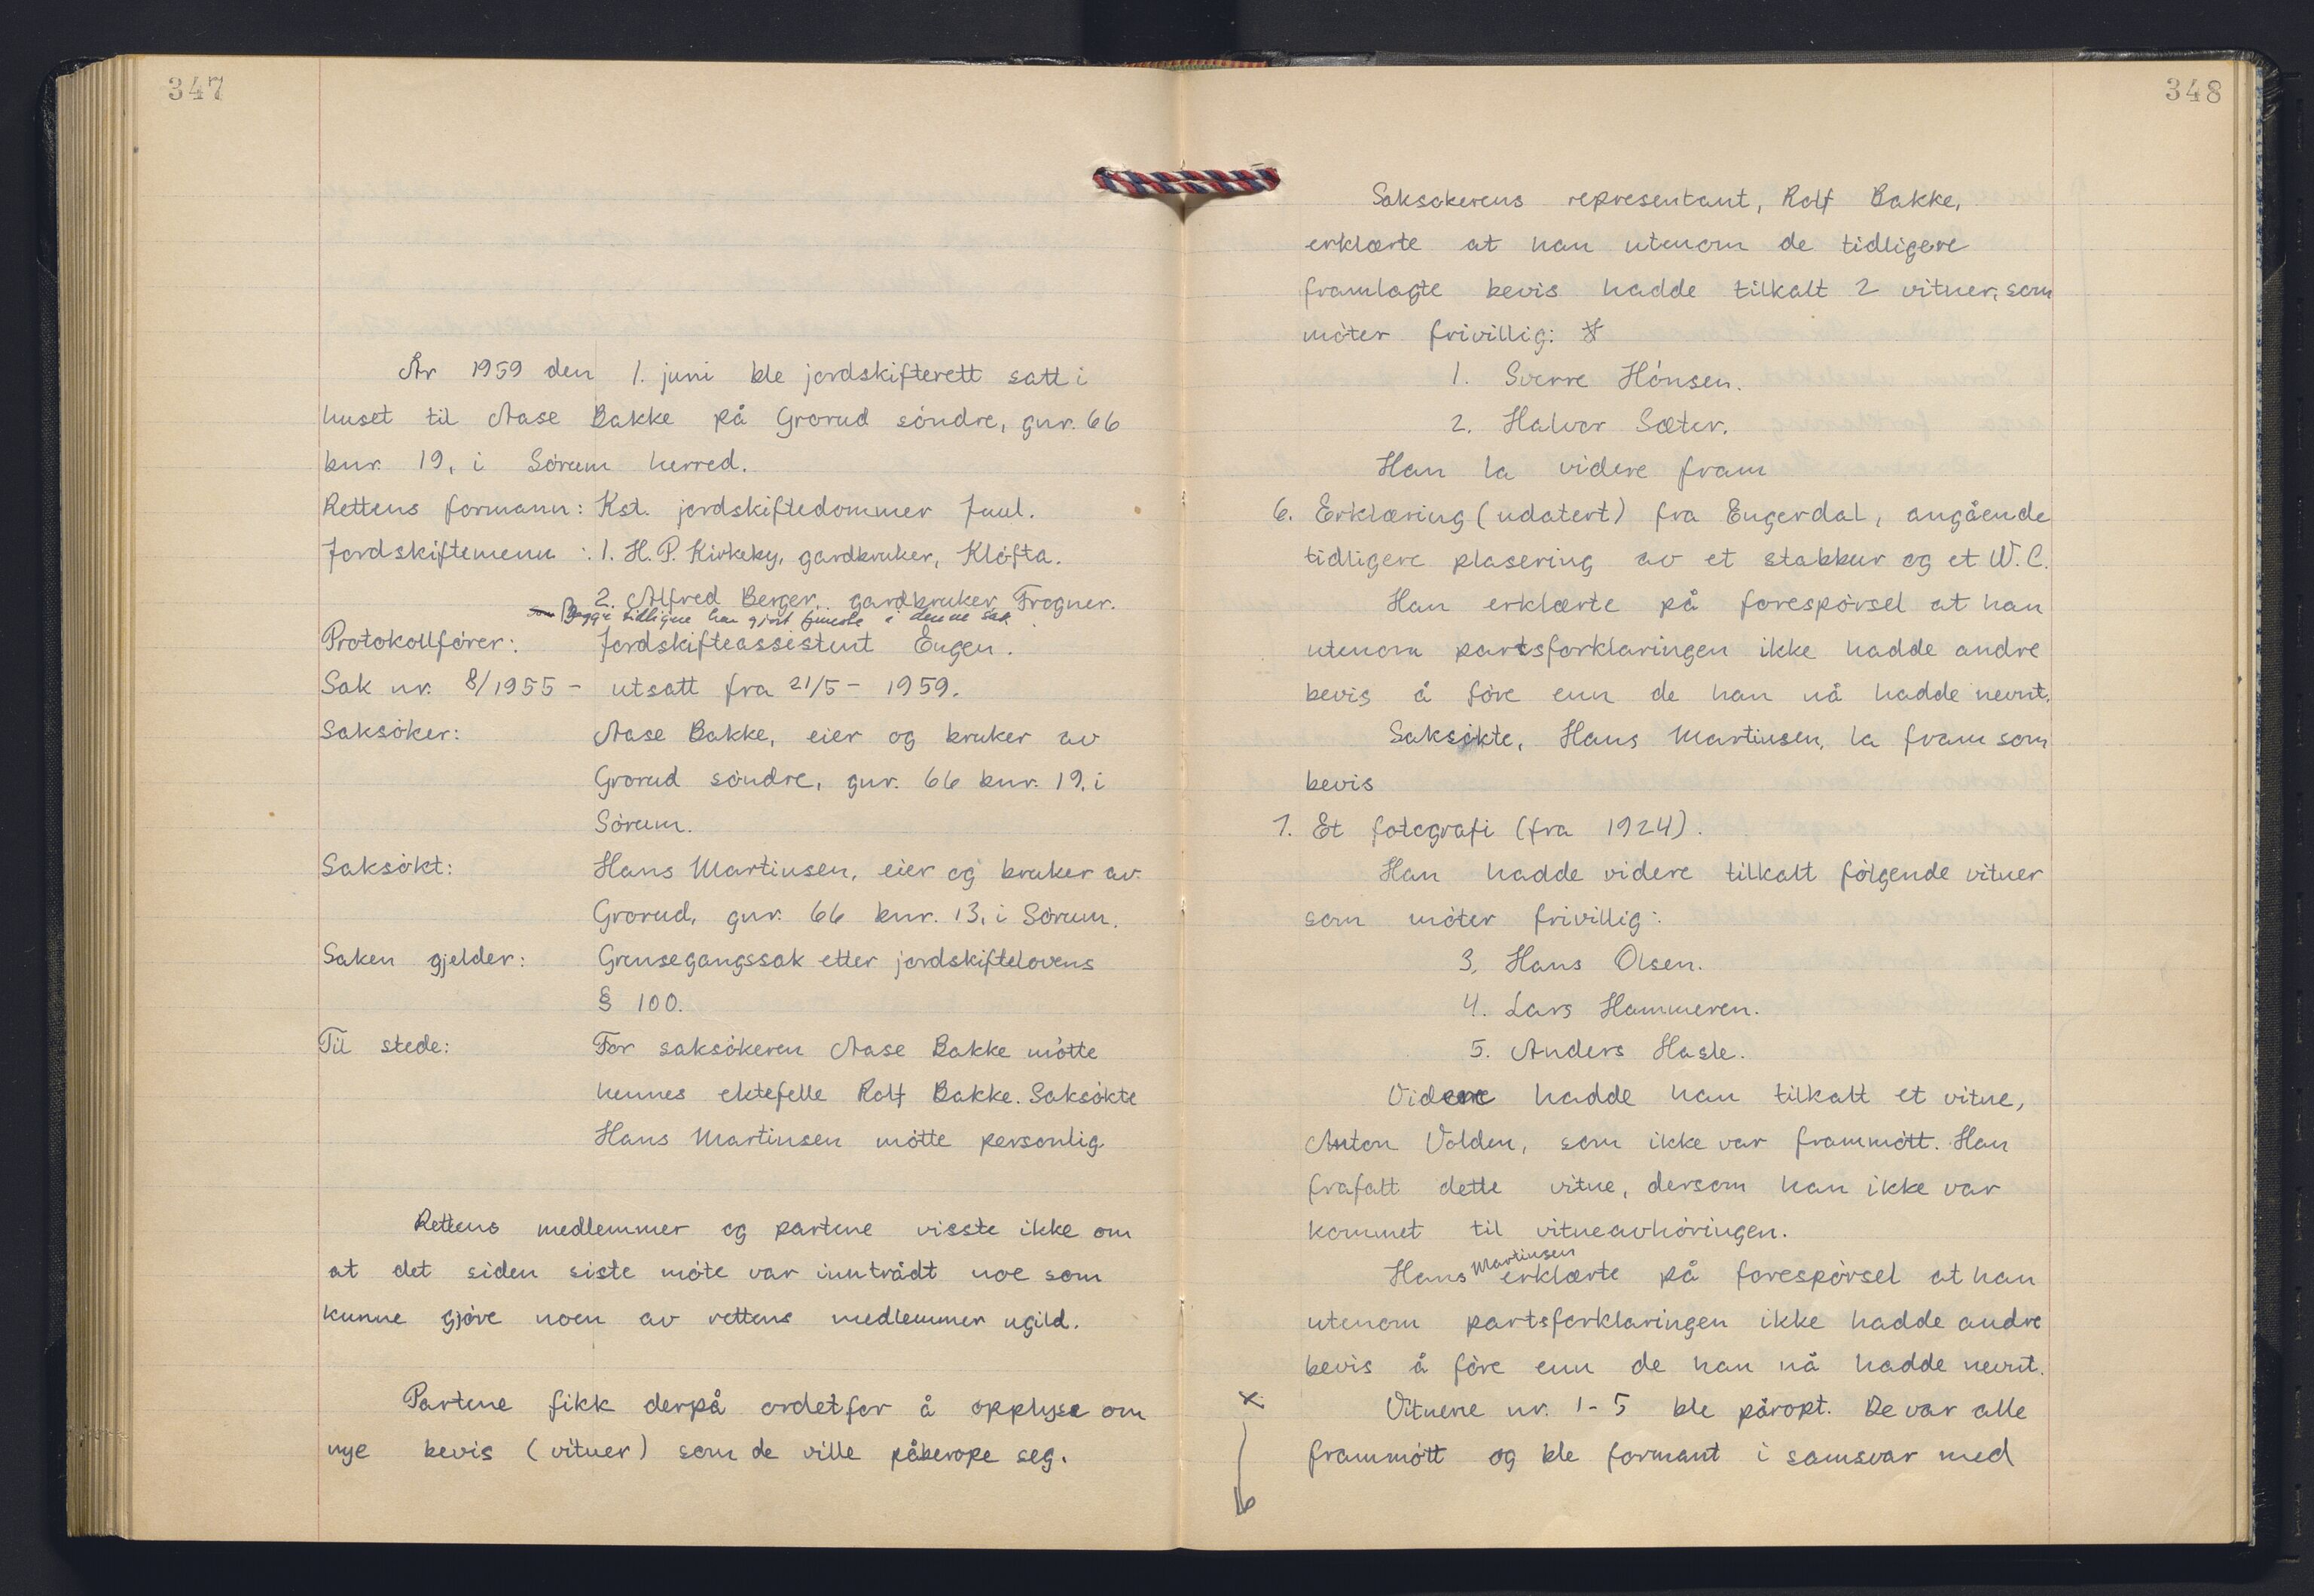 347
År 1959 den 1. juni ble jordskifterett satt i
huset til Aase Bakke på Grorud söndre, gnr. 66
bnr. 19, i Sörum herred.
Rettens formann: Kst. jordskiftedommer Juul.
Jordskiftemenn : 1. H. P. Kirkeby, gardbruker, Klöfta.
2. Alfred Berger, gardbruker, Frogner.
Begge tidligere har gjort teneste i denne sak
Protokollförer: Jordskifteassistent Engen.
Sak nr. 8/1955 – utsatt fra 21/5 – 1959.
Saksöker: Aase Bakke, eier og bruker av
Grorud söndre, gnr. 66 bnr. 19, i
Sörum.
Saksökt: Hans Martinsen, eier og bruker av
Grorud, gnr. 66 bnr. 13, i Sörum.
Saken gjelder: Grensegangssak etter jordskiftelovens
§ 100.
Til stede: For saksökeren Aase Bakke mötte
hennes ektefelle Rolf Bakke. Saksökte
Hans Martinsen mötte personlig.
Rettens medlemmer og partene visste ikke om
at det siden siste möte var inntrådt noe som
kunne gjöre noen av rettens medlemmer ugild.
Partene fikk derpå ordet for å opplyse om
nye bevis (vitner) som de ville påberope seg.
348
Saksökerens representant, Rolf Bakke,
erklærte at han utenom de tidligere
framlagte bevis hadde tilkalt 2 vitner, som
möter frivillig:
1. Sverre Hönsen.
2. Halvor Sæter.
Han la videre fram
6. Erklæring (udatert) fra Engerdal, angående
tidligere plasering av et stabbur og et W.C.
Han erklærte på forespörsel at han
utenom partsforklaringen ikke hadde andre
bevis å före enn de han nå hadde nevnt.
Saksökte, Hans Martinsen, la fram som
bevis
7. Et fotografi (fra 1924).
Han hadde videre tilkalt fölgende vitner
som möter frivillig:
3. Hans Olsen.
4. Lars Hammeren.
5. Anders Hasle.
Videre hadde han tilkalt et vitne,
Anton Volden, som ikke var frammött. Han
frafalt dette vitne, dersom han ikke var
kommet til vitneavhöringen.
Hans Martinsen erklærte på forespörsel at han
utenom partsforklaringen ikke hadde andre
bevis å före enn de han nå hadde nevnt.
x Vitnene nr. 1-5 ble påropt. De var alle
frammött og ble formant i samsvar med